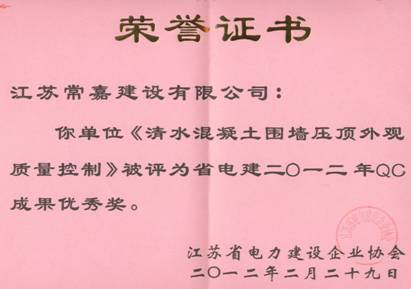 荣誉证书
江苏常嘉建设有限公司：
你单位《清水混凝土围墙压顶外观
质量控制》被评为省电建二〇一二年QC
成果优秀奖。
江苏省电力建设企业协会
二〇一二年二月二十九日